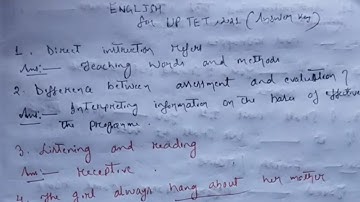 ENGLISH
for UP TET, 2021 (Answer key)
1. Direct instruction refers
Ans:- Teaching words and methods
2. Difference between assessment and evaluation?
Ans:- Interpreting information on the basis of effective
the programme.
3. Listening and reading
Ans:- Receptive.
4. The girl always hang about her mother